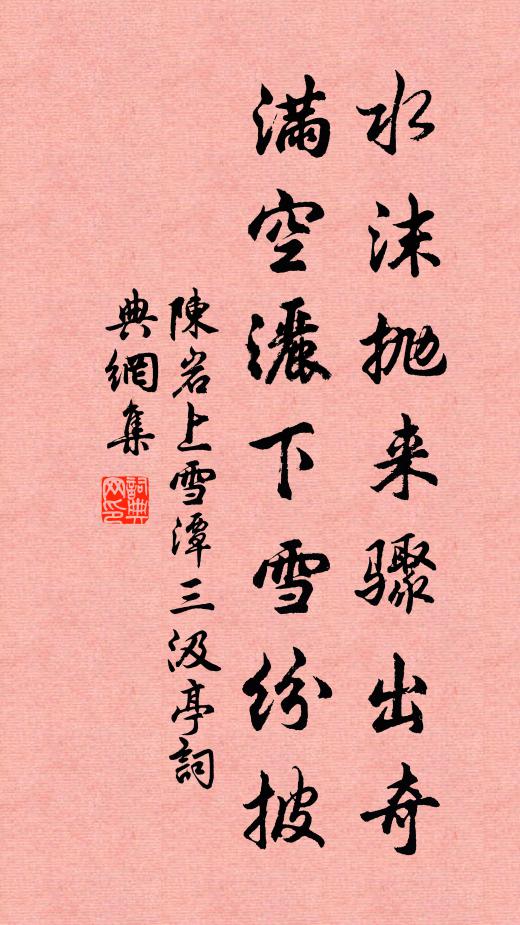 水沫抛来骤出奇
满空灑下雪纷披
陳岩上雪潭三汲亭詞
典網集
詞典网印